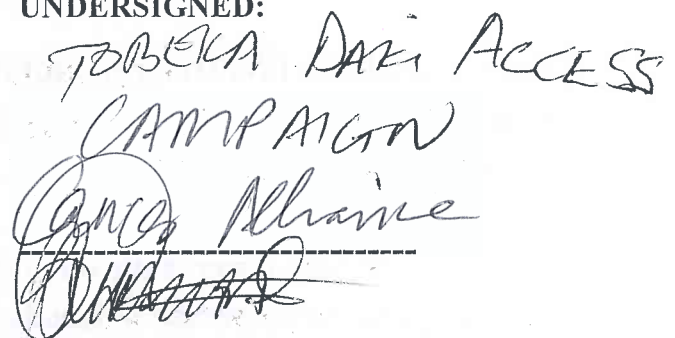 UNDERSIGNED:
TOBEKA DAKi ACCESS
CAMPAIGN
Cancer Alliance